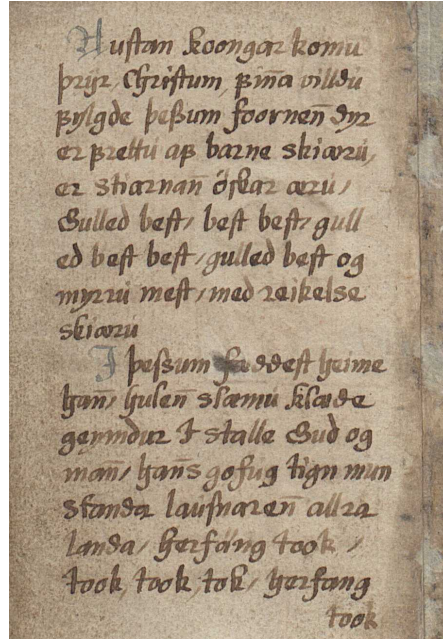 Austan koongar komu
þrijr, Christum, fin̄a villdu
fylgde þeßum foornen̄ dyr
er frettu af barne skiæru,
er stiarnan̄ öskar æru /
Gulled best / best best / gull
ed best best / gulled best og
myrru mest / med reikelse
skiæru
I þessum fæddest heime
han / hulen̄ slæmu klæde
geymdur I stalle Gud og
man̄ / han̄s gofug tign mun
standa lausnaren̄ allra
landa / herfäng took /
took, took, tok / herfang
took